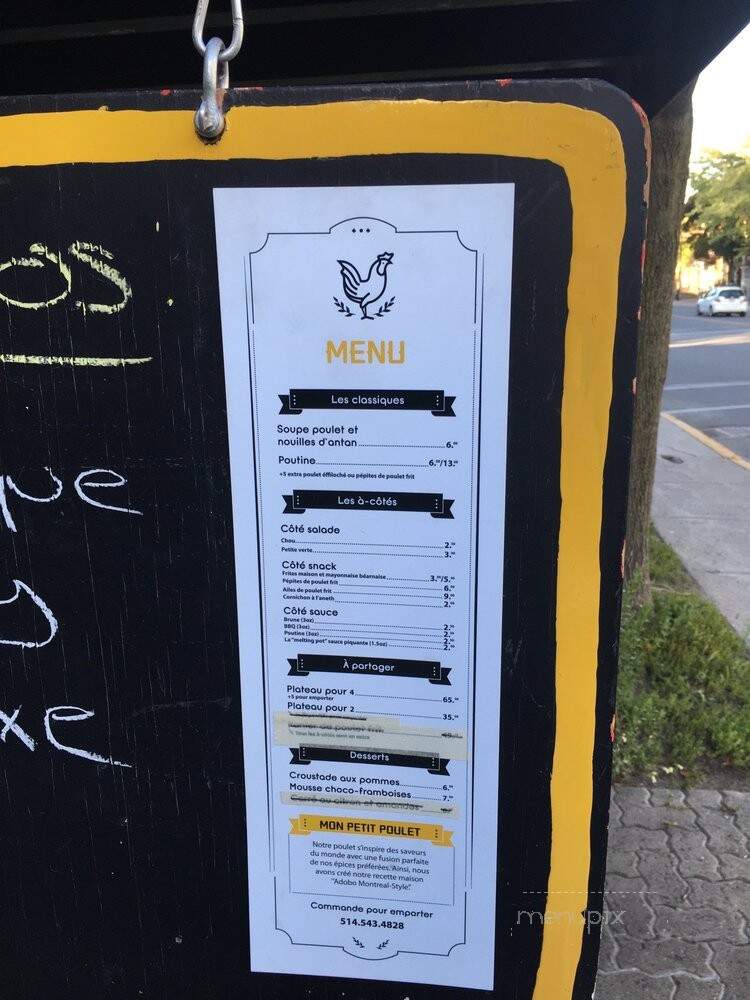 MENU
Les classiques
Soupe poulet et
nouilles d'antan 6.⁰⁰
Poutine 6.⁰⁰/13.⁰⁰
+5 extra poulet éffiloché ou pépites de poulet frit
Les à-côtés
Côté salade
Chou 2.⁰⁰
Petite verte 3.⁰⁰
Côté snack
Frites maison et mayonnaise béarnaise 3.⁰⁰/5.⁰⁰
Pépites de poulet frit 6.⁰⁰
Ailes de poulet frit 9.⁰⁰
Cornichon à l'aneth 2.⁰⁰
Côté sauce
Brune (3oz) 2.⁰⁰
BBQ (3oz) 2.⁰⁰
Poutine (3oz) 2.⁰⁰
La "melting pot" sauce piquante (1.5oz) 2.⁰⁰
À partager
Plateau pour 4 65.⁰⁰
+5 pour emporter
Plateau pour 2 35.⁰⁰
Desserts
Croustade aux pommes 6.⁰⁰
Mousse choco-framboises 7.⁰⁰
Carré au citron et amandes
MON PETIT POULET
Notre poulet s'inspire des saveurs
du monde avec une fusion parfaite
de nos épices préférées. Ainsi, nous
avons créé notre recette maison
"Adobo Montreal-Style".
Commande pour emporter
514.543.4828
menupix